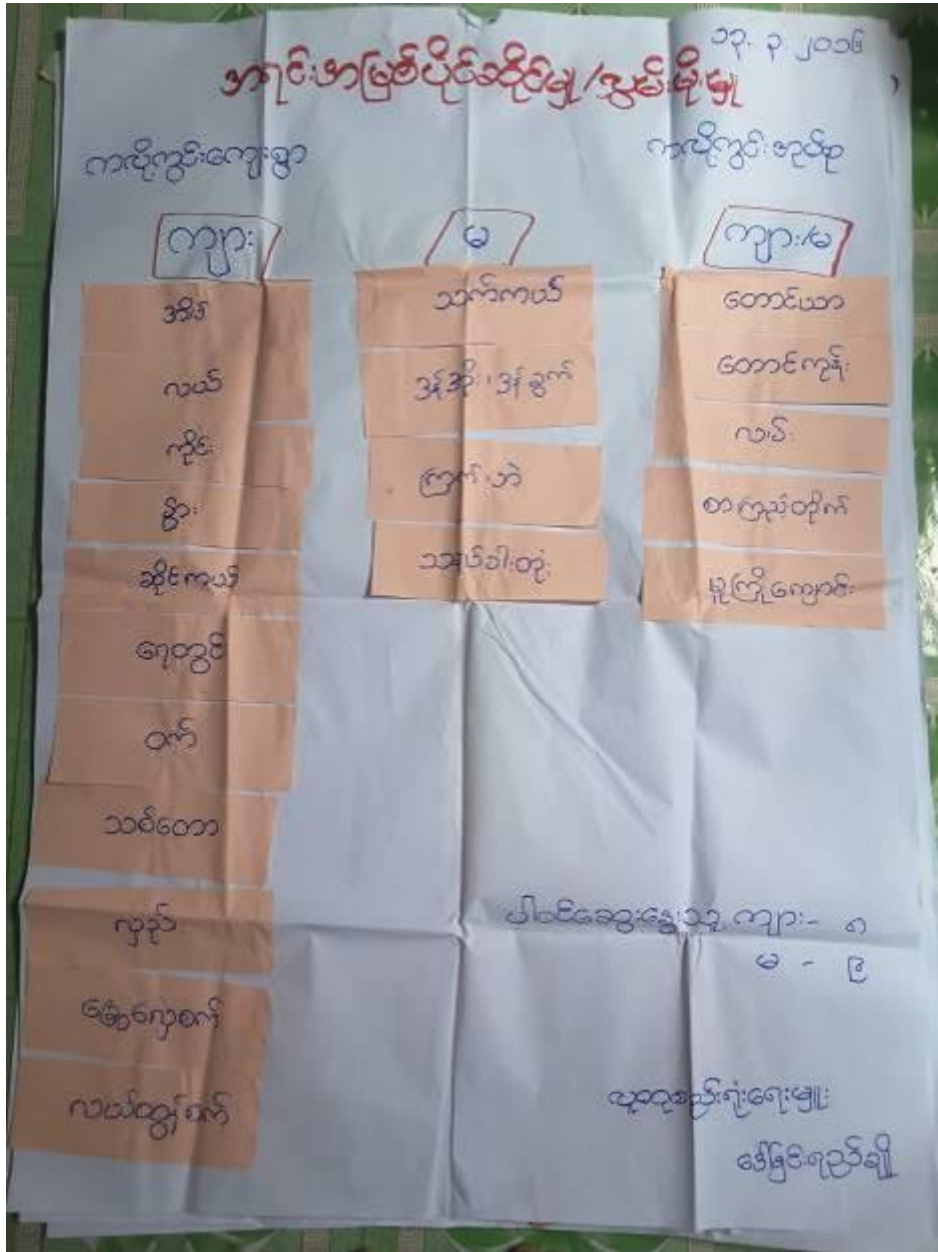 ၁၃. ၃. ၂၀၁၆
အရင်းအမြစ်ပိုင်ဆိုင်မှု/လွှမ်းမိုးမှု
ကလိုကွင်းကျေးရွာ
ကလိုကွင်းအုပ်စု
ကျား
အိမ်
လယ်
ကိုင်း
နွား
ဆိုင်ကယ်
ရေတွင်း
ဝက်
သစ်တော
လှည်း
လှေစက်
လယ်ထွန်စက်
မ
သက်ကယ်
ဒန်အိုး၊ ဒန်ခွက်
ကြက်၊ ဘဲ
ကျား/မ
တောင်ယာ
တောင်ကုန်း
လမ်း
စာကြည့်တိုက်
မူကြိုကျောင်း
ပါဝင်ဆွေးနွေးသူ ကျား- ၈
မ - ၉
လူထုစည်းရုံးရေးမှူး
ဒေါ်ခြင်းရည်ချို